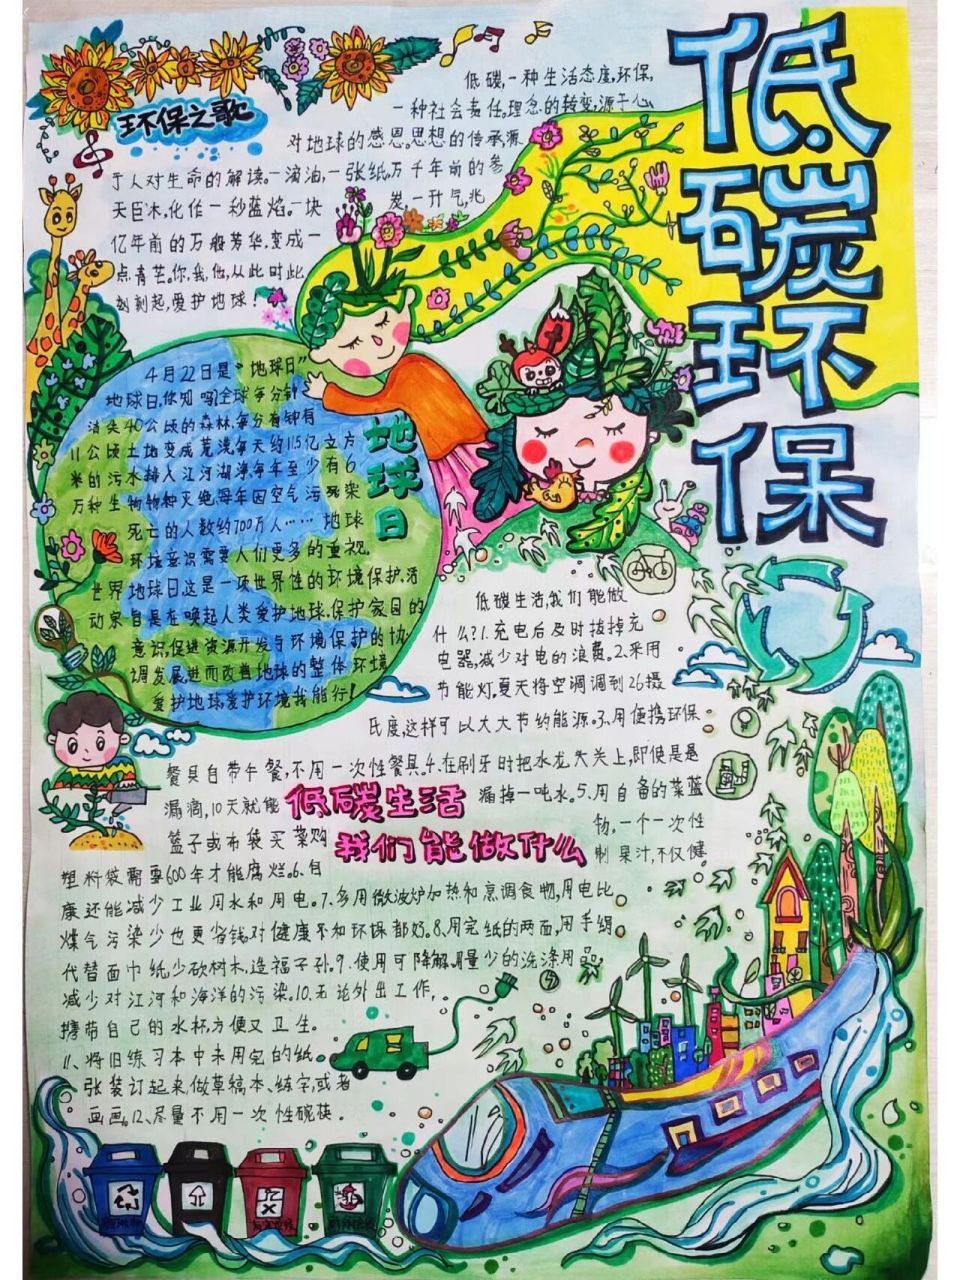 低碳环保
环保之歌
低碳,一种生活态度,环保,
一种社会责任,理念的转变,源于心
对地球的感恩.思想的传承源
于人对生命的解读.一滴油,一张纸.万千年前的参
天巨木,化作一秒蓝焰.一块
发,一升气,兆
亿年前的万般芳华,变成一
点青芒.你,我,他,从此时此
刻刻起,爱护地球!
地球日
4月22日是"地球日"
地球日,你知吗?全球每分钟
消失40公顷的森林,每分有钟有
11公顷土地变成荒漠每天约115亿立方
米的污水排入江河湖海每年至少有6
万种生物物种灭绝,每年因空气污死染
死亡的人数约700万人……地球
环境意识需要人们更多的重视。
世界地球日这是一项世界性的环境保护,活
动宗自是在唤起人类爱护地球.保护家园的
意识促进资源开发与环境保护的协
调发展,进而改善地球的整体环境
爱护地球爱护环境我能行!
低碳生活
我们能做什么
低碳生活,我们能做
什么?1.充电后及时拔掉充
电器,减少对电的浪费.2.采用
节能灯,夏天将空调调到26摄
氏度,这样可以大大节约能源.3.用便携环保
餐具自带午餐,不用一次性餐具.4.在刷牙时把水龙大关上,即使是是
漏滴,10天就能 漏掉一吨水.5.用自备的菜蓝
篮子或布袋买菜购 物.一个一次性
塑料袋需要600年才能腐烂.6.自 制果汁,不仅健
康还能减少工业用水和用电.7.多用微波炉加热和烹调食物,用电比
煤气污染少也更省钱,对健康不和环保都好.8.用完纸的两面,用手绢
代替面巾纸,少砍树木,造福子孙.9.使用可降解、用量少的洗涤用品
减少对江河和海洋的污染.10.无论外出工作,
携带自己的水杯方便又卫生。
11.将旧练习本中未用完的纸
张装订起来,做草稿本、练字,或者
画画.12.尽量不用一次性碗筷。